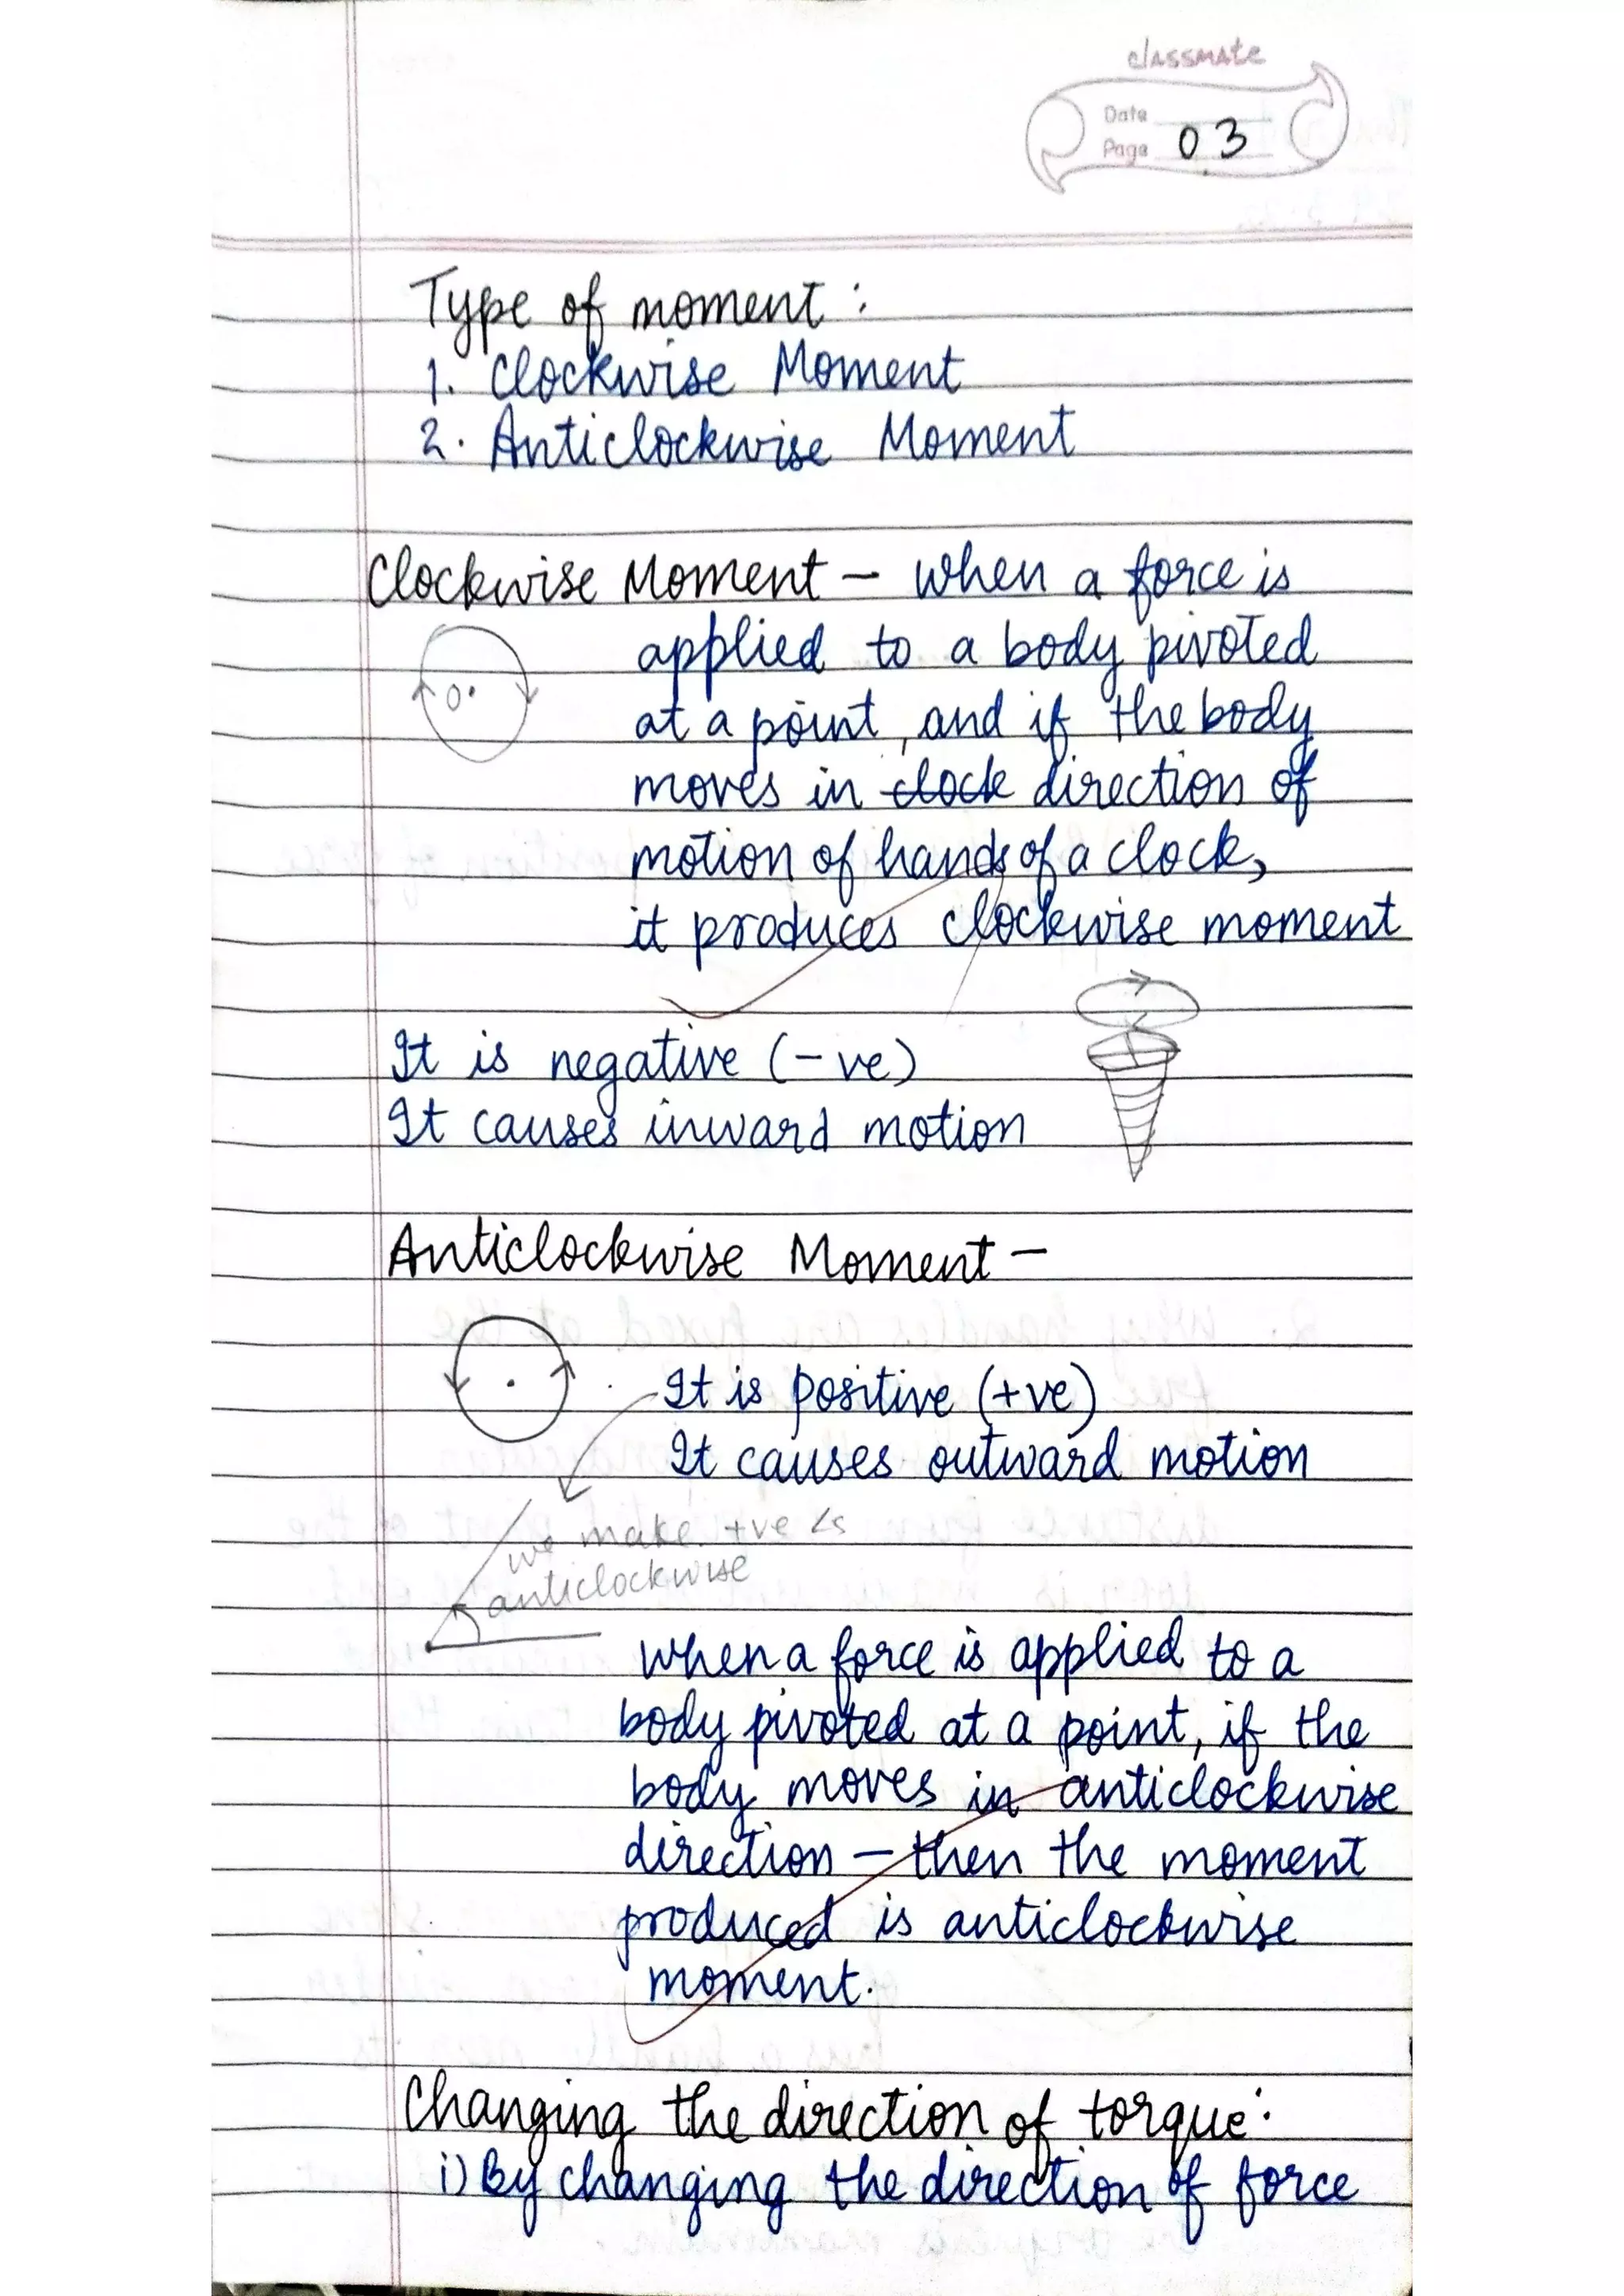 classmate
Date
Page 03
Type of moment :
1. Clockwise Moment
2. Anticlockwise Moment
Clockwise Moment – when a force is
applied to a body pivoted
at a point, and if the body
moves in clock direction of
motion of hands of a clock,
it produces clockwise moment
O
It is negative (-ve)
It causes inward motion
Anticlockwise Moment –
It is positive (+ve)
It causes outward motion
we make +ve ∠s
anticlockwise
when a force is applied to a
body pivoted at a point, if the
body moves in anticlockwise
direction – then the moment
produced is anticlockwise
moment.
Changing the direction of torque:
i) By changing the direction of force